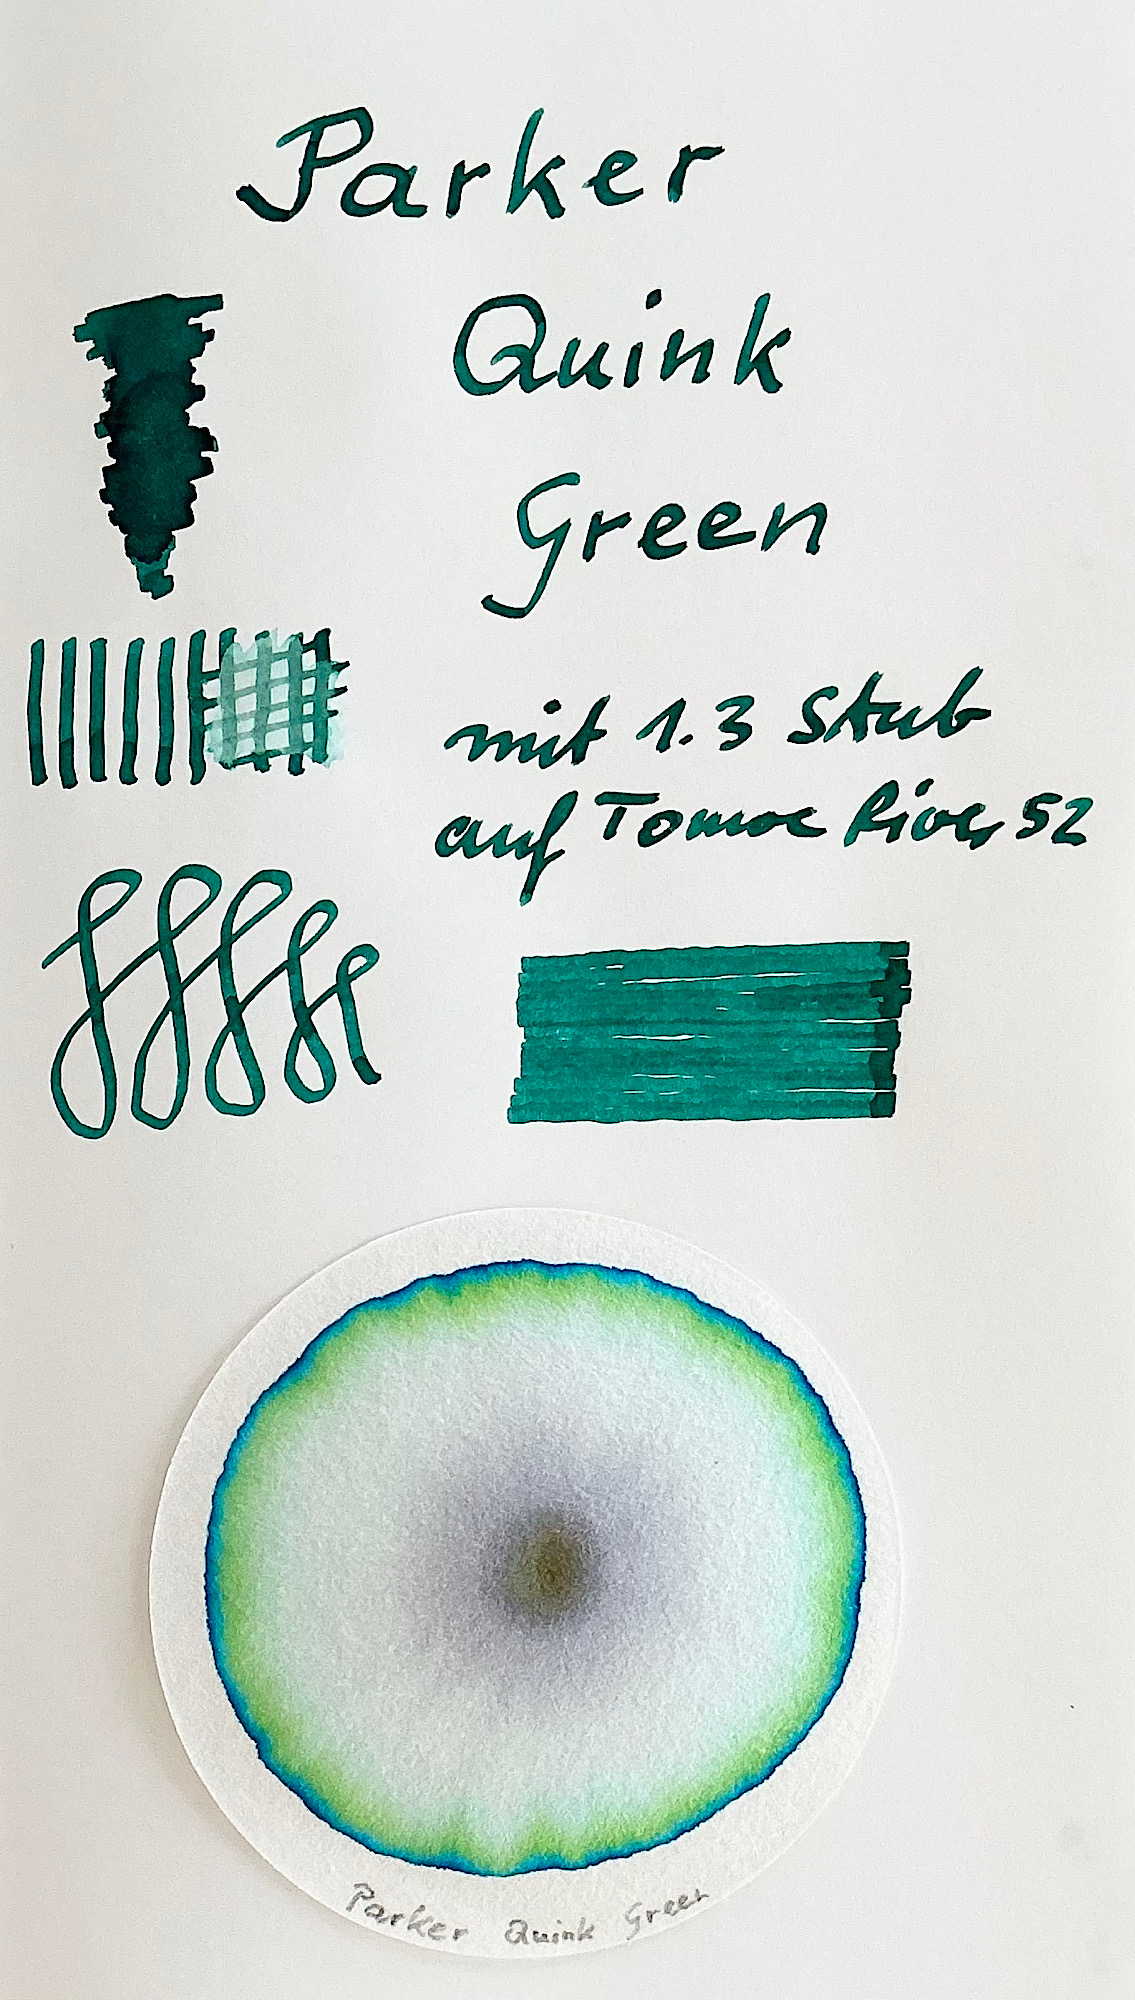 Parker
Quink
Green
mit 1.3 Stub
auf Tomoe River 52
Parker Quink Green